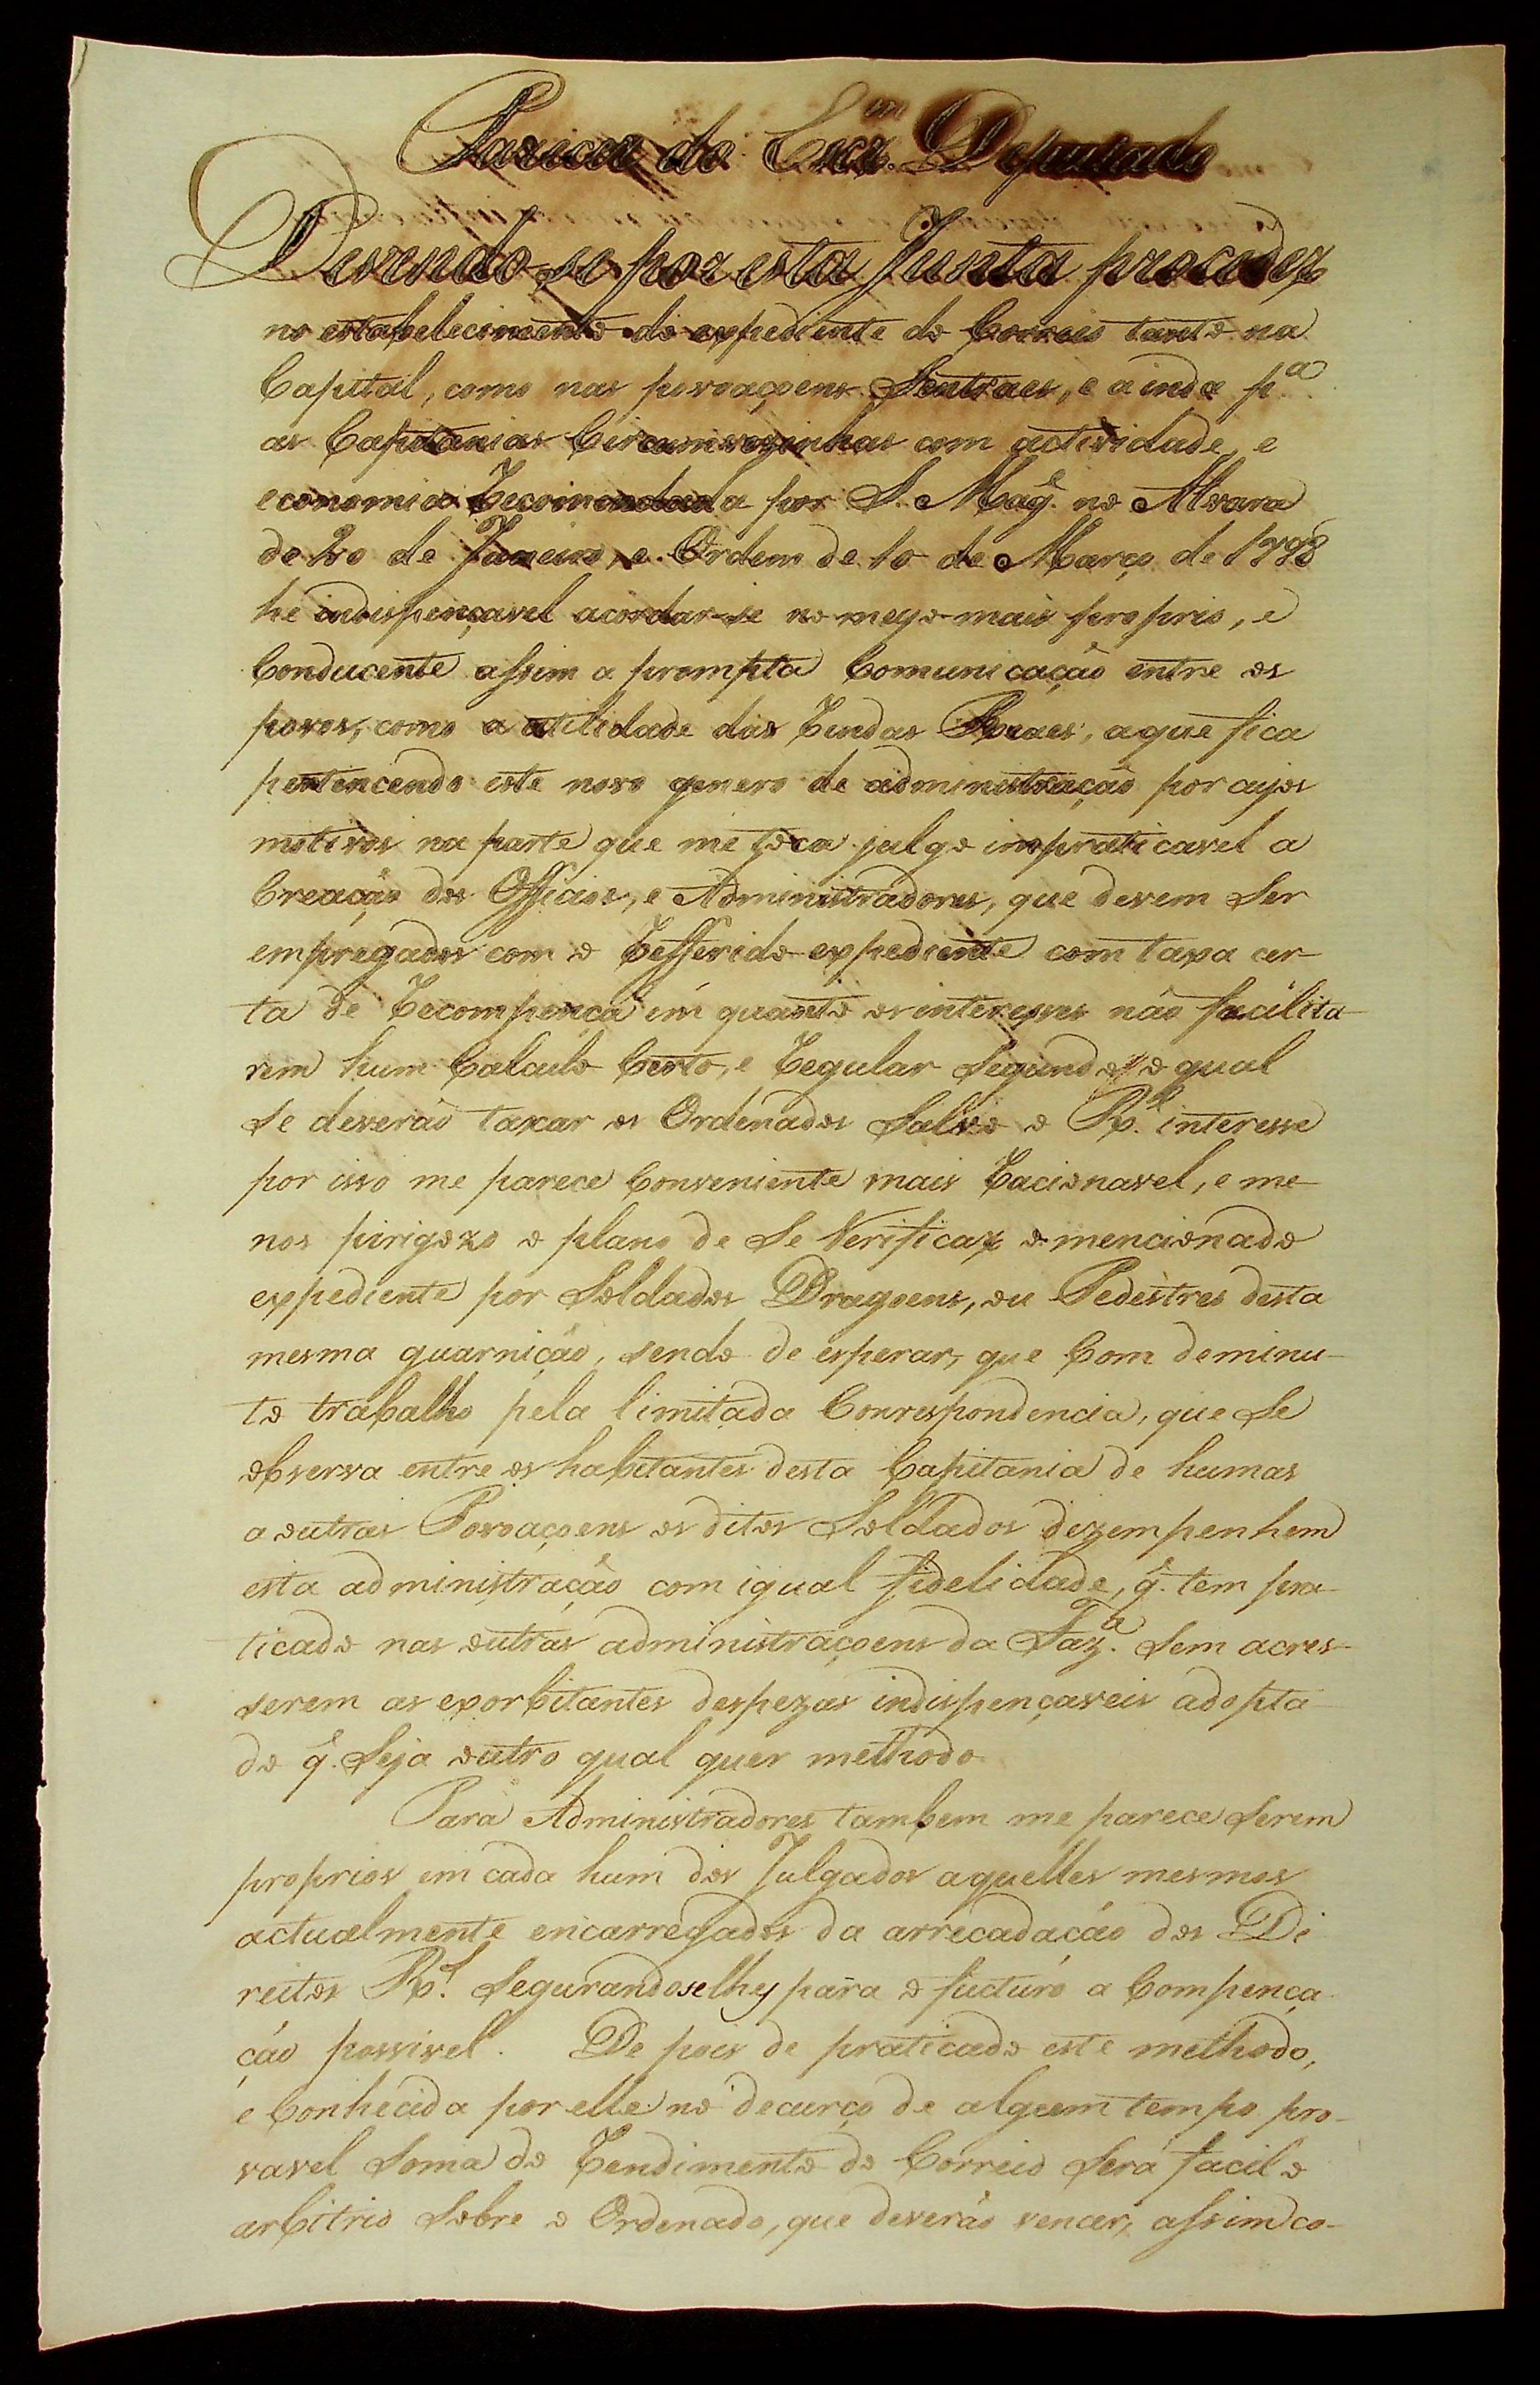 Paricer do Escr.m Deputado
Devendo-se por esta Junta proceder
no estabelecimento do expediente do Correio tanto na
Capital, como nas povoaçoens Sentraes, e ainda p.a
as Capitanias Circumvezinhas com actividade, e
economia Recomendada por S. Mag.e no Alvara
de 20 de Janeiro, e Ordem de 10 de Março de 1798
he indispençavel acordar-se no meyo mais proprio, e
Conducente assim a prompta Comunicação entre os
povos, como a utilidade das Rendas Reaes, a que fica
pertencendo este novo genero de administração por cujos
motivos na parte que me tóca julgo impraticavel a
Creação dos Officios, e Administradores, que devem Ser
empregados com o Refferido expediente com taxa cer-
ta de Recompença em quanto os interesses não facilita-
rem hum Calculo Certo, e Regular Segundo o qual
Se deverão taxar os Ordenados Salvo o R.l interesse
por isso me parece Conveniente mais Racionavel, e me-
nos pirigozo o plano de Se Verificar o mencionado
expediente por Soldados Dragoens, ou Pedestres desta
mesma guarnição, sendo de esperar, que Com deminu-
to trabalho pela limitada Correspondencia, que Se
observa entre os habitantes desta Capitania de humas
a outras Povoaçoens os ditos Soldados dezempenhem
esta administração com igual fidelidade, q. tem pra-
ticado nas outras administraçoens da Faz.a Sem acres-
serem as exorbitantes despezas indispençaveis adopta-
do q. Seja outro qual quer methodo
Para Administradores tambem me parece Serem
proprios em cada hum dos Julgados aquelles mesmos
actualmente encarregados da arrecadação dos Di
reitos R.s Segurandoselhes para o futuro a Compença
ção possivel. De pois de praticado este methodo,
e Conhecida por elle no decurço de algum tempo pro-
vavel Soma do Rendimento do Correio Será facil o
arbitrio Sobre o Ordenado, que deverão vencer, assim co-